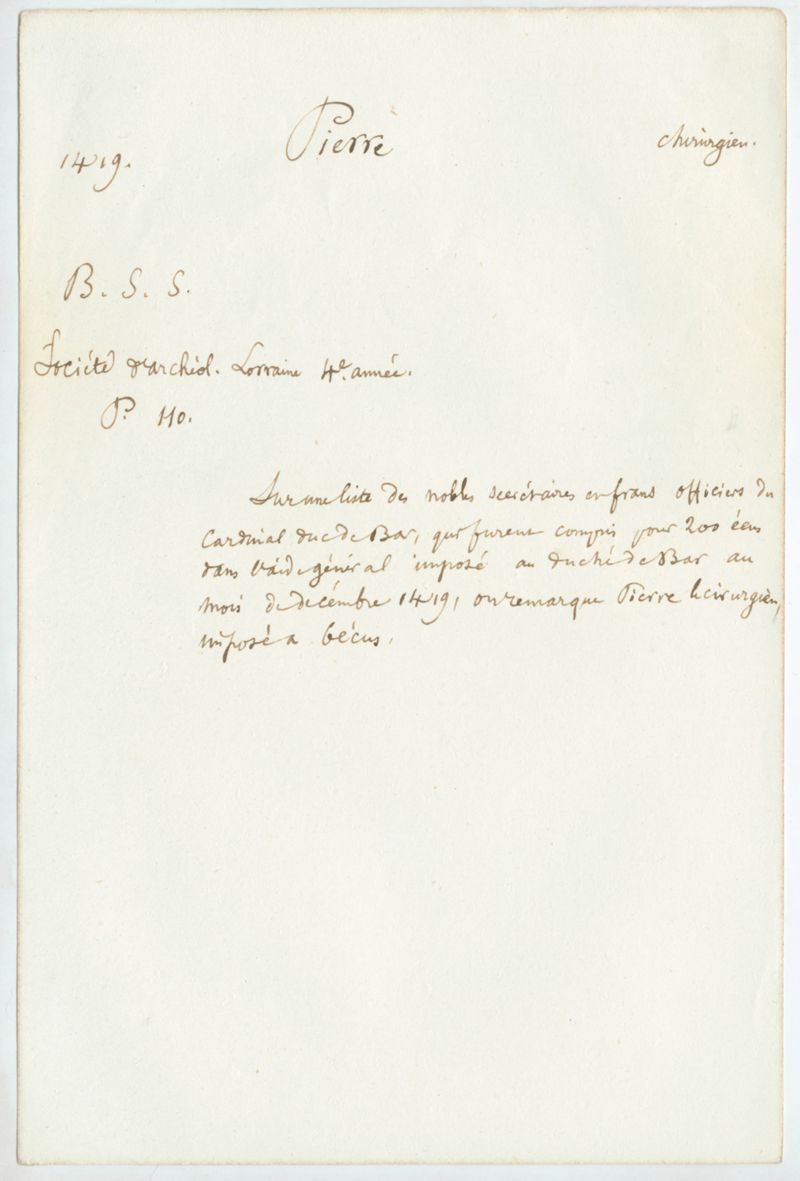 1419. Pierre chirurgien.
B. S. S.
Société d'archéol. Lorraine 4e. année.
P. 110.
Sur une liste des nobles secrétaires enfrans officiers du
Cardinal duc de Bar, qui furent compris pour 200 écus
dans l'aide général imposé au duché de Bar au
mois de décembre 1419, on remarque Pierre le cirurgien,
imposé a 6 écus.